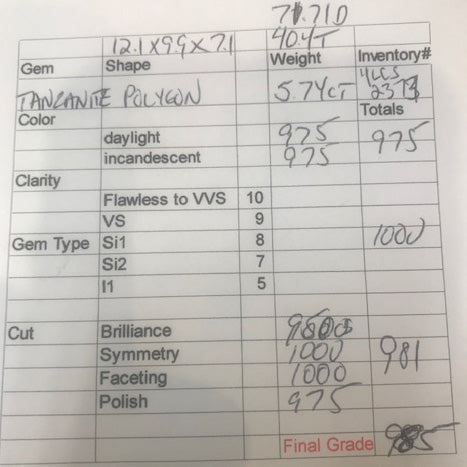 71.71D
12.1x9.9x7.1 40.4T
Gem Shape Weight Inventory#
TANZANITE POLYGON 5.74CT
Color Totals
daylight 975 975
incandescent 975
Clarity
Flawless to VVS 10
VS 9
Gem Type Si1 8 1000
Si2 7
I1 5
Cut Brilliance
Symmetry 1000 981
Faceting 1000
Polish 975
Final Grade 985